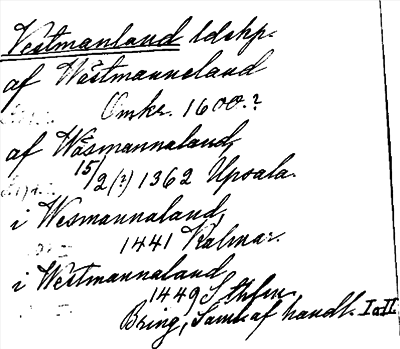 Vestmanland ldskp.
af Wästmanneland
Omkr. 1600.?
af Wäsmannaland,
15/2 (?) 1362 Upsala.
i Wesmannaland,
1441 Kalmar.
i Westmannaland
1449 Sthlm.
Bring, Saml. af handl. I o II